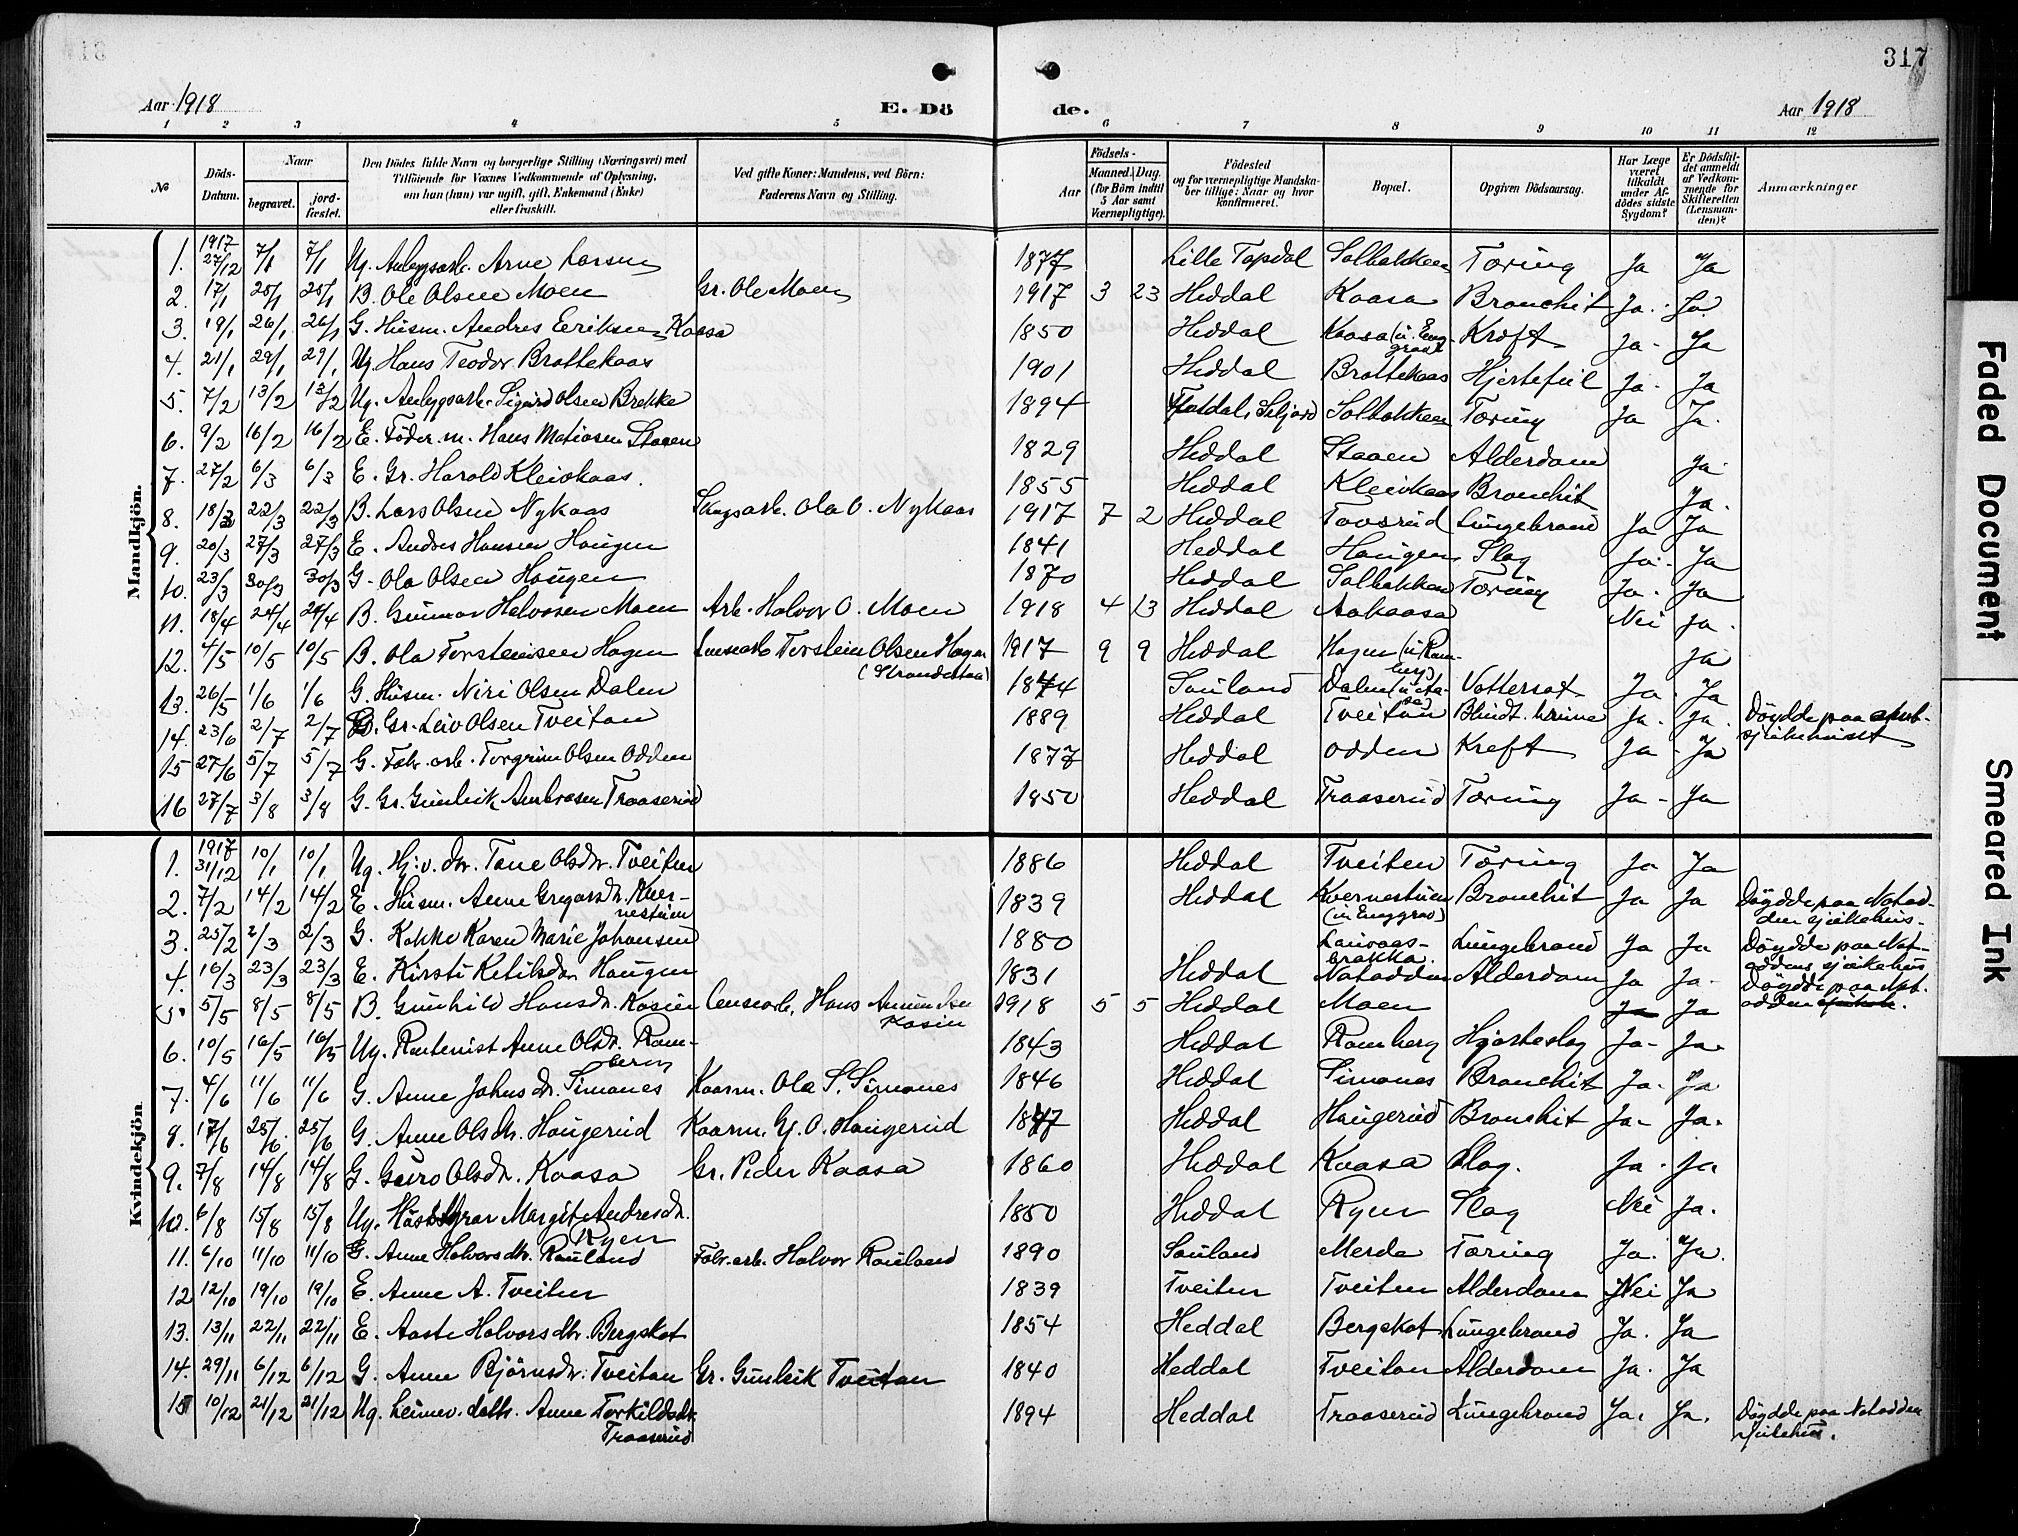 317
Aar 1918 E. Dö
de. Aar 1918
1 2 3 4 5 6 7 8 9 10 11 12
№ Döds-Datum. Naar begravet. jord-fæstet. Den Dödes fulde Navn og borgerlige Stilling (Næringsvei) med Tilföiende for Voxnes Vedkommende af Oplysning, om han (hun) var ugift, gift, Enkemand (Enke) eller fraskilt. Ved gifte Koner: Mandens, ved Börn: Faderens Navn og Stilling. Födsels- Aar Maaned. Dag. (for Börn indtil 5 Aar samt Værnepligtige). Födested og for værnepligtige Mandska-ber tillige: Naar og hvor konfirmeret. Bopæl. Opgiven Dödsaarsag. Har Læge været tilkaldt under Af-dödes sidste Sygdom? Er Dödsfal-det anmeldt af Vedkom-mende for Skifteretten (Lensman-den)? Anmærkninger
Mandkjön.
1. 1917 27/12 7/1 7/1 Ug. Anlegsarb. Arne Larsen 1877 Lille Topdal Solbakken Tæring Ja Ja
2. 17/1 25/1 25/1 B. Ole Olsen Moen Gr. Ole Moen 1917 3 23 Heddal Kaasa Bronchit Ja. Ja.
3. 19/1 26/1 26/1 G. Husm. Andres Eeriksen Kaasa 1850 Heddal Kaasa (u. Eng-grav Kræft Ja- Ja
4. 21/1 29/1 29/1 Ug. Hans Teodor Brattekaas 1901 Heddal Brattekaas Hjertefeil Ja. Ja
5. 7/2 13/2 13/2 Ug. Anlegsarb. Sigurd Olsen Brekke 1894 Flatdal, Seljord Solbakken Tæring Ja Ja.
6. 9/2 16/2 16/2 E. Föder.m. Hans Matiasen Staaen 1829 Heddal Staaen Alderdom Ja.
7. 27/2 6/3 6/3 E. Gr. Harald Kleivkaas. 1855 Heddal Kleivkaas Bronchit Ja.
8. 18/3 22/3 22/3 B. Lars Olsen Nykaas Skogsarb. Ola O. Nykaas 1917 7 2 Heddal Tovsrud Lungebrand Ja Ja
9. 20/3 27/3 27/3 E. Andres Hansen Haugen 1841 Heddal Haugen Slag Ja. Ja
10. 23/3 30/3 30/3 G. Ola Olsen Haugen 1870 Heddal Solbakken Tæring Ja. Ja
11. 18/4 24/4 24/4 B. Gunnar Halvorsen Moen Arb. Halvor O. Moen 1918 4 13 Heddal Aakaasa Nei Ja.
12. 4/5 10/5 10/5 B. Ola Torsteinsen Hagen Torstein Olsen Hagen 1917 9 9 Heddal Hagen (u. Ram-berg) Ja
13. 26/5 1/6 1/6 G. Husm. Niri Olsen Dalen 1874 Sauland Dalen Vattersot Ja. Ja
14. 23/6 2/7 2/7 Gr. Leiv Olsen Tveitan 1889 Heddal Tveitan Blindt. Ja. Ja. Döydde paa
15 27/6 5/7 5/7 G. Fabr.arb. Torgrim Olsen Odden 1877 Heddal Odden Kreft Ja. Ja
16 27/7 3/8 3/8 G. Gr. Gunleik Traaserud 1850 Heddal Traaserud Tæring Ja- Ja
Kvindekjön.
1. 1917 31/12 10/1 10/1 Ug. Tone Olsdr. Tveiten 1886 Heddal Tveiten Tæring Ja Ja
2. 7/2 14/2 14/2 E. Husm. Anne Gregarsdr. Kver-
nestuen 1839 Heddal Kvernestuen (u. Enggrav) Bronchit Ja Ja Döydde paa Notod-
den sjukehus.
3. 25/2 2/3 2/3 G. Kokke Karen Marie Johansen 1880 Lungebrand Ja Ja Döydde paa Not-
oddens sjukehus
4. 16/3 23/3 23/3 E. Kirsti Ketilsdr. Haugen 1831 Heddal Notodden Alderdom Ja Ja. Döydde paa Not-
odden
5. 5/5 8/5 8/5 B. Gunhild Hansdr. Kasin Hans Kasin 1918 5 5 Heddal Moen Ja Ja
6. 10/5 16/5 16/5 Ug. Rentenist Anne Olsdr. Ram-
berg 1843 Heddal Ramberg Hjerteslag Ja- Ja.
7. 4/6 11/6 11/6 G. Anne Johnsdr. Simones Kaarm. Ola S. Simones 1846 Heddal Simones Bronchit Ja. Ja
8. 17/6 25/6 25/6 G. Anne Olsdtr. Haugerud Kaarm. G. O. Haugerud 1847 Heddal Haugerud Bronchit Ja. Ja.
9. 7/8 14/8 14/8 G. Guro Olsdr. Kaasa Gr. Peder Kaasa 1860 Heddal Kaasa Slag. Ja. Ja
10. 6/8 15/8 15/8 Ug. Margit Andresdr.
Ryen 1850 Heddal Ryen Slag Nei Ja.
11. 6/10 11/10 11/10 G. Anne Halvorsdtr. Rauland Fabr.arb. Halvor Rauland 1890 Sauland Merda Tæring Ja. Ja.
12 12/10 19/10 19/10 E. Anne A. Tveiten 1839 Tveiten Tveiten Alderdom Nei Ja
13. 13/11 22/11 22/11 E. Aaste Halvorsdtr. Bergskot 1854 Heddal Bergskot Lungebrand Ja. Ja
14. 29/11 6/12 6/12 G. Anne Björnsdr. Tveitan Gr. Gunleik Tveitan 1840 Heddal Tveitan Alderdom Ja. Ja
15 10/12 21/12 21/12 Ug. Anne Torkildsdr.
Traaserud 1894 Heddal Traaserud Lungebrand Ja. Ja. Döydde paa Notodden
sjukehus.
Faded Document
Smeared Ink